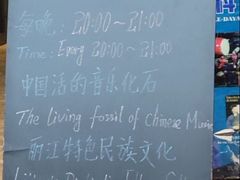 每晚: 20:00~21:00
Time: Every 20:00~21:00
中国活的音乐化石
The living fossil of Chinese Music
丽江特色民族文化